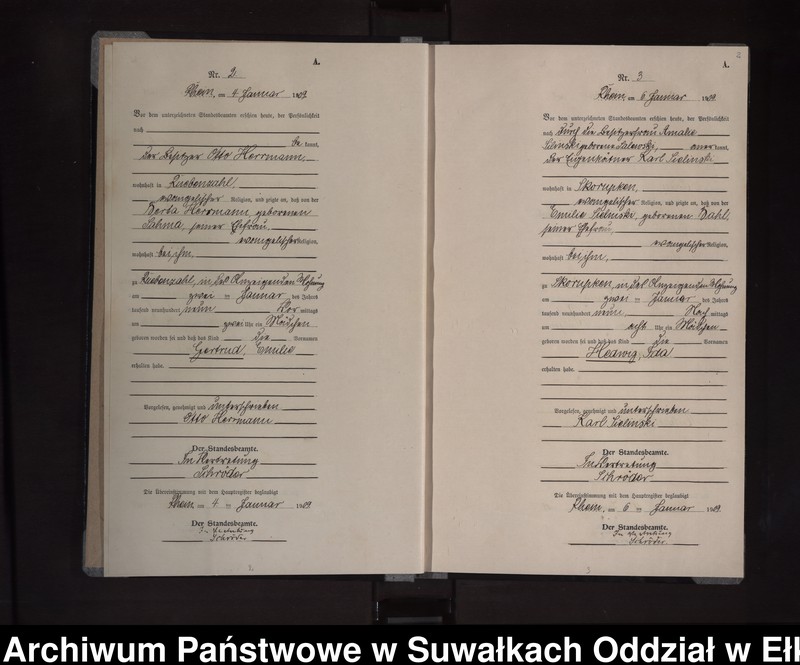 A.
Nr. 2
Rhein, am 4 Januar 1909
Vor dem unterzeichneten Standesbeamten erschien heute, der Persönlichkeit
nach
be kannt,
der Besitzer Otto Herrmann,
wohnhaft in
evangelischer Religion, und zeigte an, daß von der
Berta Herrmann geborenen
seiner Ehefrau,
evangelischer Religion,
wohnhaft bei ihm,
zu in des Anzeigenden Wohnung
am zwei ten Januar des Jahres
tausend neunhundert neun Vor mittags
um zwei Uhr ein Mädchen
geboren worden sei und daß das Kind die Vornamen
Gertrud, Emilie
erhalten habe.
Vorgelesen, genehmigt und unterschrieben
Otto Herrmann
Der Standesbeamte.
In Vertretung
Schröder
Die Übereinstimmung mit dem Hauptregister beglaubigt
Rhein, am 4 ten Januar 1909
Der Standesbeamte.
In Vertretung
Schröder
2.
2
A.
Nr. 3
Rhein, am 6 Januar 1909
Vor dem unterzeichneten Standesbeamten erschien heute, der Persönlichkeit
nach durch die Besitzerfrau Amalie
geborene aner kannt,
der Eigenkätner Karl Sielinski
wohnhaft in Skorupken,
evangelischer Religion, und zeigte an, daß von der
Emilie Sielinski, geborenen
seiner Ehefrau,
evangelischer Religion,
wohnhaft bei ihm,
zu Skorupken, in des Anzeigenden Wohnung
am zwei ten Januar des Jahres
tausend neunhundert neun Nach mittags
um acht Uhr ein Mädchen
geboren worden sei und daß das Kind die Vornamen
Hedwig, Ida
erhalten habe.
Vorgelesen, genehmigt und unterschrieben
Karl Sielinski
Der Standesbeamte.
In Vertretung
Schröder
Die Übereinstimmung mit dem Hauptregister beglaubigt
Rhein, am 6 ten Januar 1909
Der Standesbeamte.
In Vertretung
Schröder
3
Archiwum Państwowe w Suwałkach Oddział w Ełk